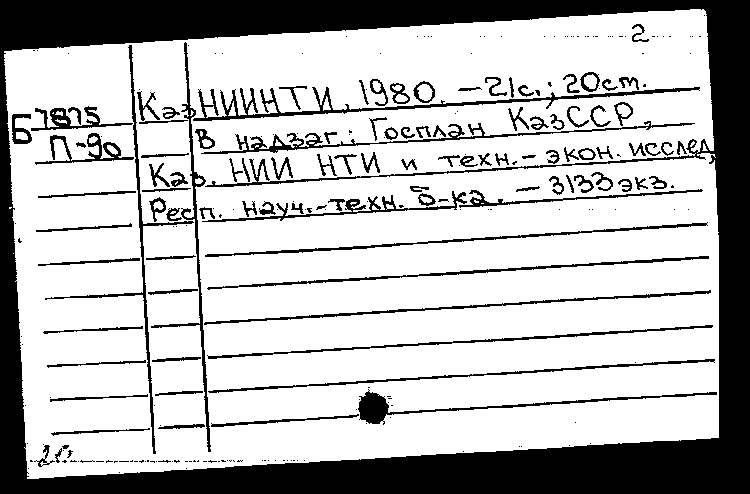 2
Б 7875
П-90
КазНИИНТИ, 1980. — 21с.; 20см.
В надзаг.: Госплан КазССР,
Каз. НИИ НТИ и техн.-экон. исслед,
Респ. науч.-техн. б-ка. — 3133экз.